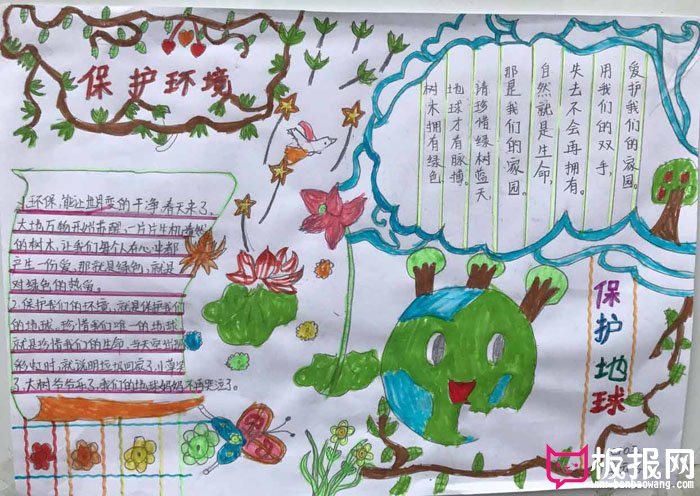 保护环境
1.环保,能让世界变的干净.春天来了,
大地万物开始苏醒,一片片生机勃勃
的树木,让我们每个人在心中都
产生一份爱,那就是绿色,就是
对绿色的热爱。
2.保护我们的环境,就是保护我们
的地球,珍惜我们唯一的地球
就是珍惜我们的生命,
了,大树爷爷乐了,我们的地球妈妈不再哭泣了。
爱护我们的家园。
用我们的双手,
失去不会再拥有。
自然就是生命,
那是我们的家园。
请珍惜绿树蓝天,
地球才有脉搏。
树木拥有绿色
保护地球
板报网
www.banbaowang.com